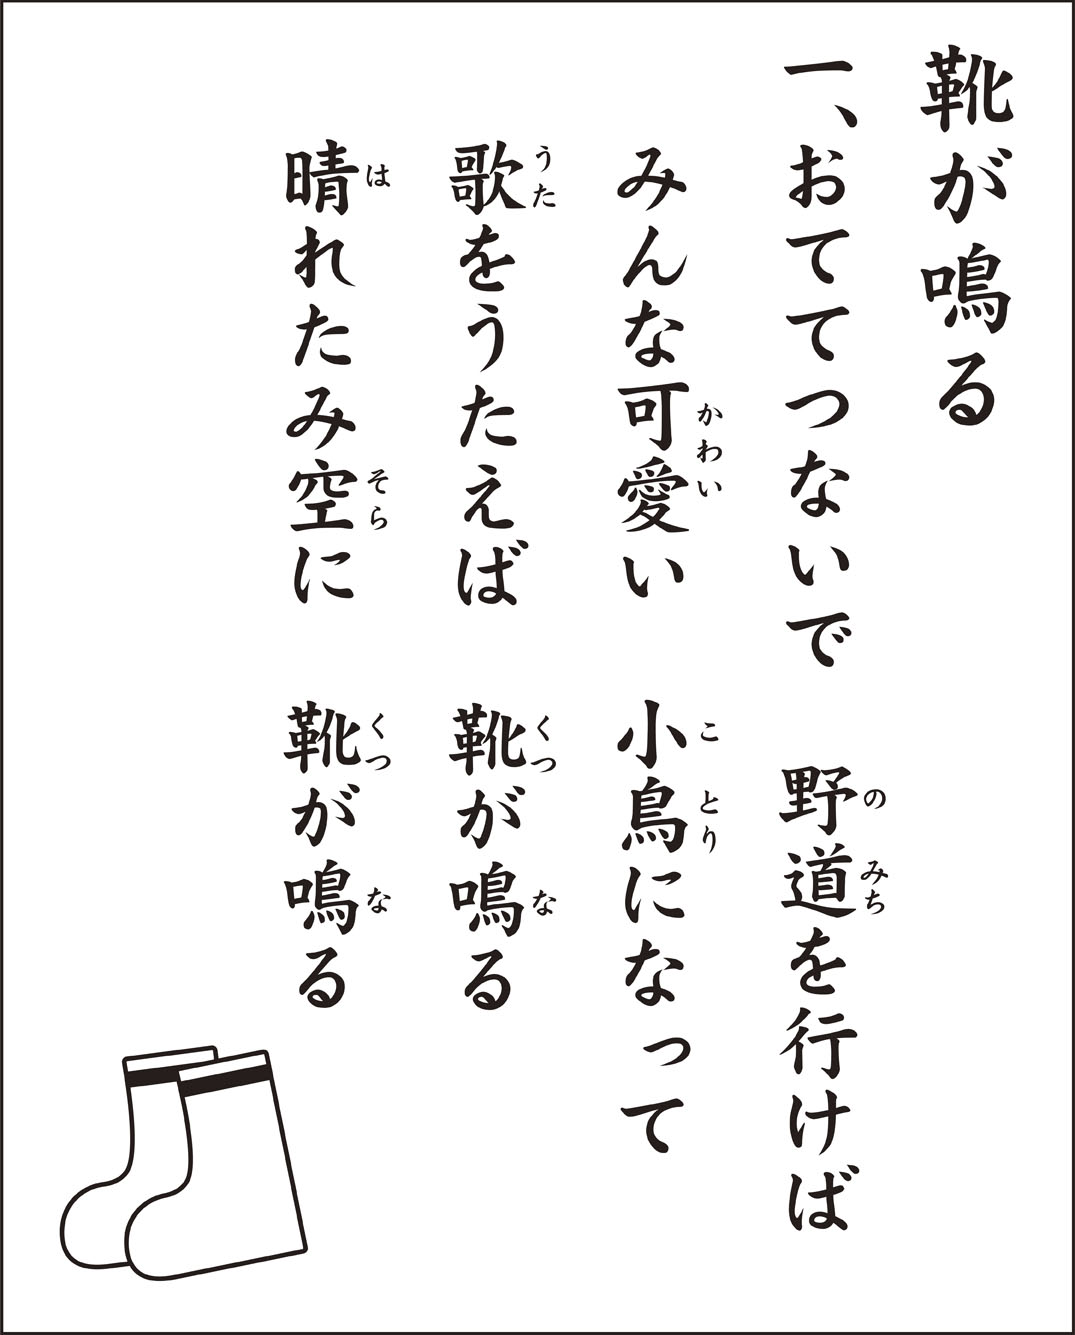 靴が鳴る
一、おててつないで　野道を行けば
みんな可愛い　小鳥になって
歌をうたえば　靴が鳴る
晴れたみ空に　靴が鳴る